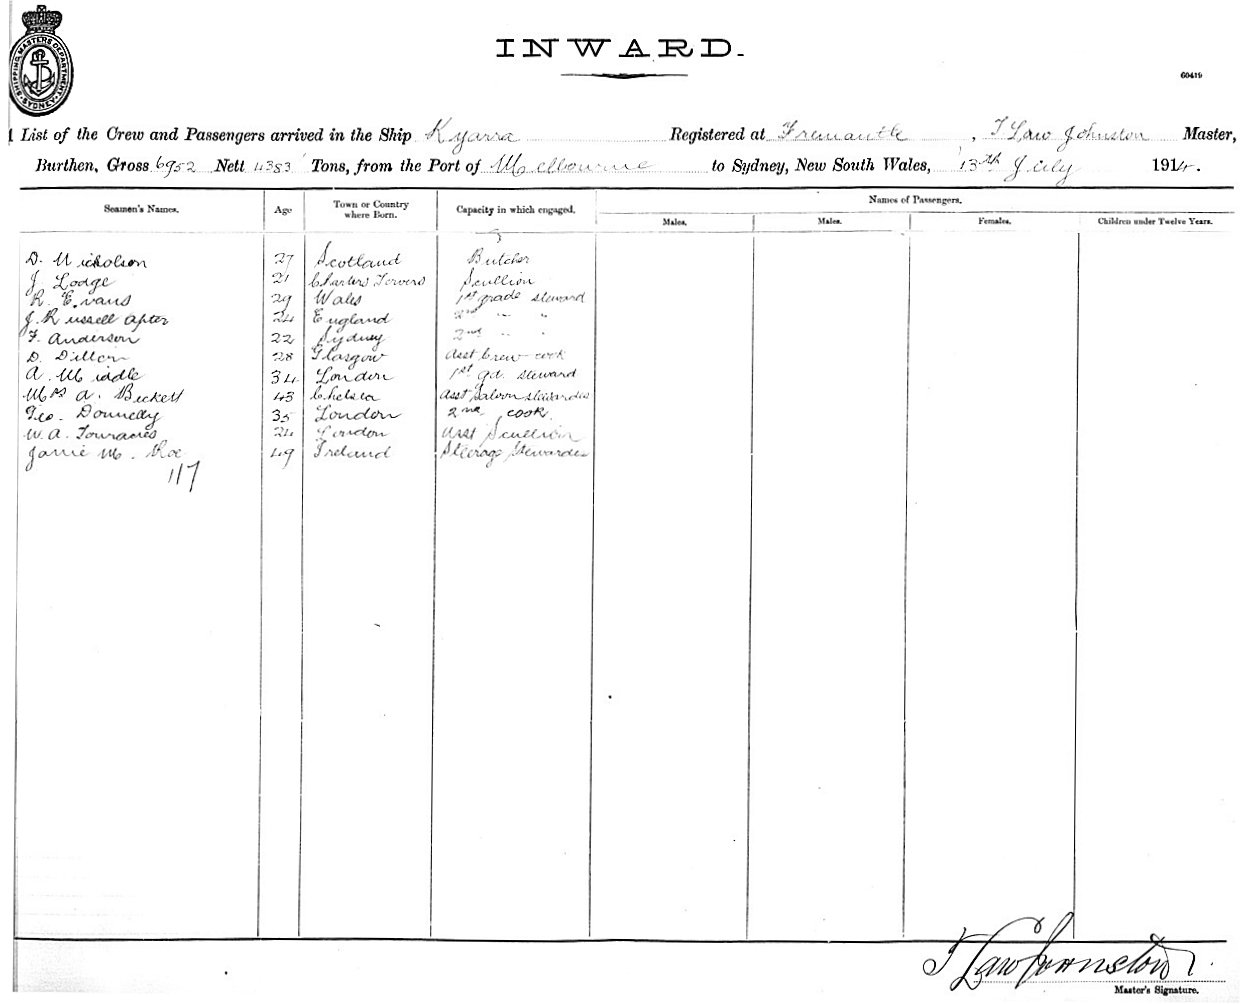 SHIPPING MASTERS DEPARTMENT SYDNEY
INWARD.
60419
List of the Crew and Passengers arrived in the Ship Kyarra Registered at Fremantle, T Law Johnston Master,
Burthen, Gross 6952 Nett 4383 Tons, from the Port of Melbourne to Sydney, New South Wales, 13th July 1914.
Seamen's Names. Age Town or Country where Born. Capacity in which engaged. Names of Passengers.
Males. Males. Females. Children under Twelve Years.
D. Nicholson 27 Scotland Butcher
J Lodge 21 Charters Towers Scullion
R. Evans 29 Wales 1st grade steward
J. Russell Apter 24 England 2nd " "
F. Anderson 22 Sydney 2nd " "
D. Dillon 28 Glasgow Asst Crew cook
A. Middle 34 London 1st gd. steward
Mrs A. Bickett 43 Chelsea Asst Saloon stewardess
Geo. Donnelly 35 London 2nd cook.
W. A. 24 London Asst Scullion
M. 49 Ireland Steerage Stewardess
117
T Law Johnston
Master's Signature.